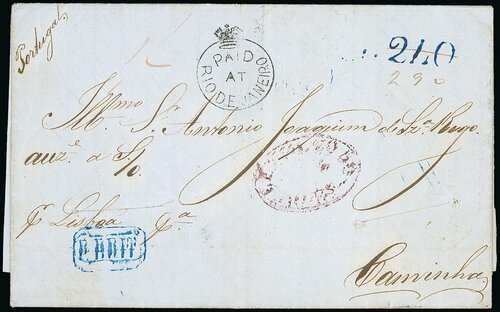 Portugal
PAID
AT
RIO DE JANEIRO
240
Illmo Sr. Antonio Joaquim de Sza Rego
auze a S/o
pr Lisboa pa
P. BRIT
Caminha